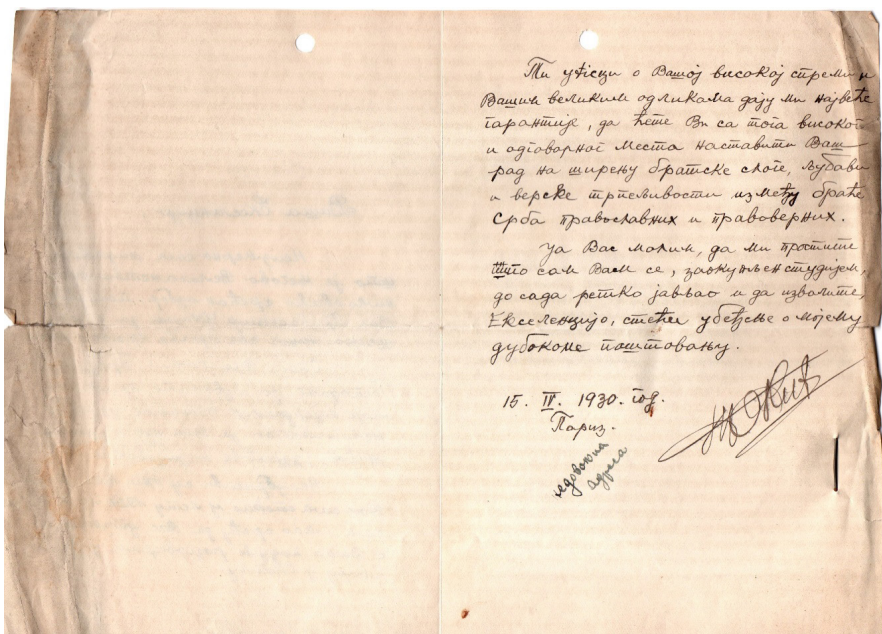 Ти утисци о Вашој високој спреми и
Вашим великим одликама дају ми највеће
гарантије, да ћете Ви са тога високог
и одговорног места наставити Ваш
рад на ширењу братске слоге, љубави
и верске трпељивости између браће
Срба православних и правоверних.
Ја Вас молим, да ми простите
што сам Вам се, заокупљен студијем,
до сада ретко јављао и да изволите,
Екселенцијо, стећи убеђење о мојему
дубокоме поштовању.
15. IV. 1930. год.
Париз.
адреса